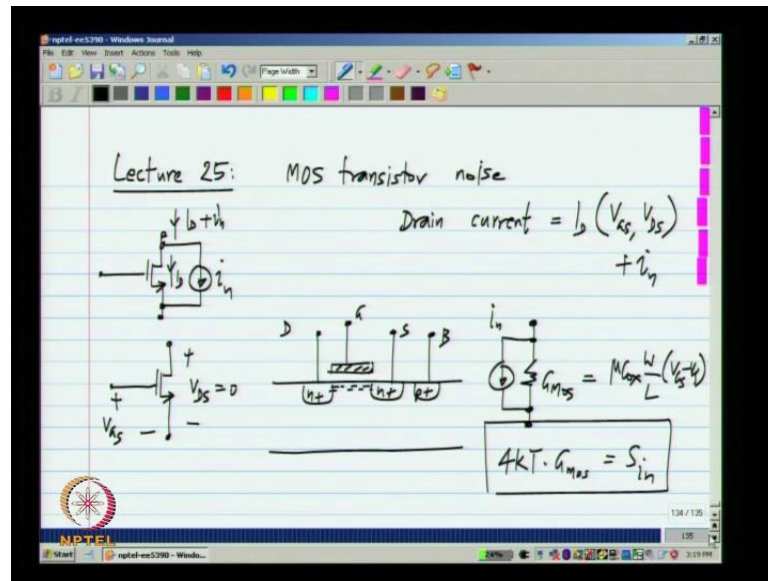 nptel-ee5390 - Windows Journal
File Edit View Insert Actions Tools Help
Page Width
B I
Lecture 25: MOS transistor noise
I_D + i_n
Drain current = I_D (V_GS, V_DS)
+ i_n
I_D i_n
D G S B
n+ n+ p+
+ V_DS = 0 -
+ V_GS -
i_n
G_MOS = μCox W/L (V_GS - V_T)
4kT · G_MOS = S_in
134 / 135
135
NPTEL
Start nptel-ee5390 - Windo...
24%
3:19 PM